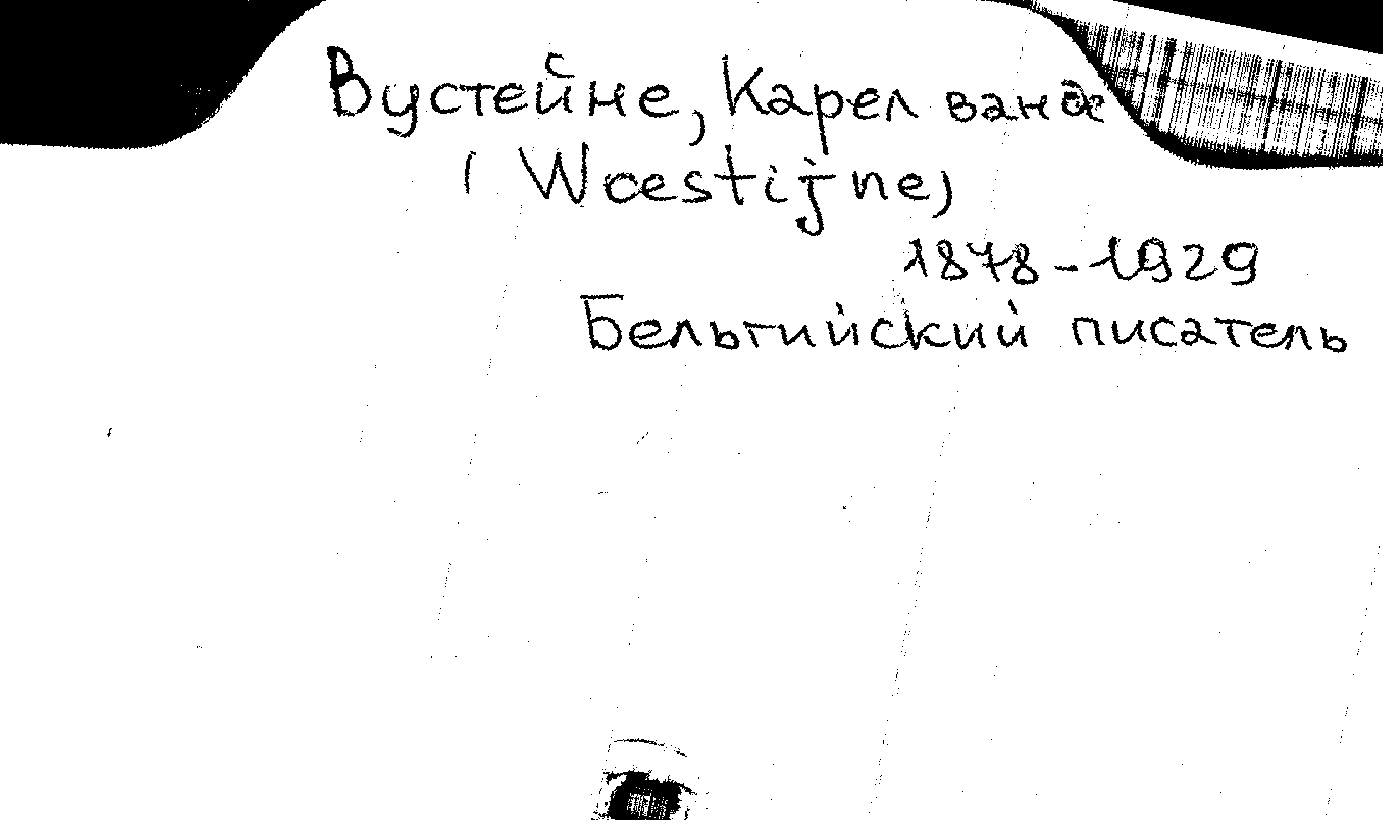 Вустейне, Карел ван де
(Woestijne)
1878-1929
Бельгийский писатель